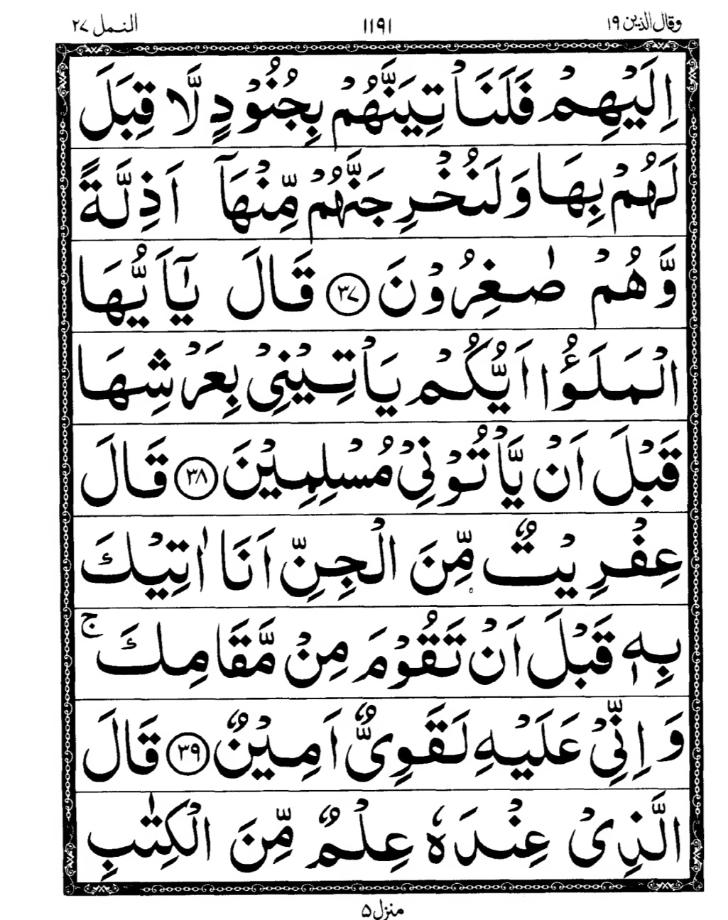 وقال الذين ١٩ ١١٩١ النمل ٢٧
اِلَيْهِمْ فَلَنَاْتِيَنَّهُمْ بِجُنُوْدٍ لَّا قِبَلَ
لَهُمْ بِهَا وَلَنُخْرِجَنَّهُمْ مِّنْهَاۤ اَذِلَّةً
وَّهُمْ صٰغِرُوْنَ ﴿٣٧﴾ قَالَ يٰۤاَيُّهَا
الْمَلَؤُا اَيُّكُمْ يَاْتِيْنِيْ بِعَرْشِهَا
قَبْلَ اَنْ يَّاْتُوْنِيْ مُسْلِمِيْنَ ﴿٣٨﴾ قَالَ
عِفْرِيْتٌ مِّنَ الْجِنِّ اَنَا اٰتِيْكَ
بِهٖ قَبْلَ اَنْ تَقُوْمَ مِنْ مَّقَامِكَ ۚ
وَاِنِّيْ عَلَيْهِ لَقَوِيٌّ اَمِيْنٌ ﴿٣٩﴾ قَالَ
الَّذِيْ عِنْدَهٗ عِلْمٌ مِّنَ الْكِتٰبِ
منزل ٥